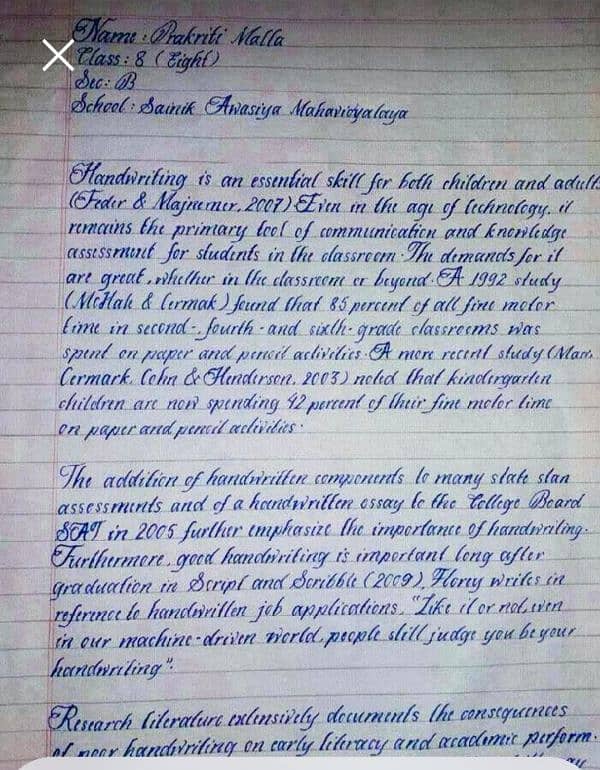 Name : Prakriti Malla
Class : 8 (Eight)
Sec : B
School : Sainik Awasiya Mahavidyalaya
Handwriting is an essential skill for both children and adults
(Feder & Majnemer, 2007) Even in the age of technology, it
remains the primary tool of communication and knowledge
assessment for students in the classroom. The demands for it
are great, whether in the classroom or beyond. A 1992 study
(McHale & Cermak) found that 85 percent of all fine motor
time in second-, fourth-and sixth-grade classrooms was
spent on paper and pencil activities. A more recent study (Marr,
Cermark, Cohn & Henderson, 2003) noted that kindergarten
children are now spending 42 percent of their fine motor time
on paper and pencil activities.
The addition of handwritten components to many state stan
assessments and of a handwritten essay to the College Board
SAT in 2005 further emphasize the importance of handwriting.
Furthermore, good handwriting is important long after
graduation in Script and Scribble (2009), Florey writes in
reference to handwritten job applications, "Like it or not, even
in our machine-driven world, people still judge you be your
handwriting".
Research literature extensively documents the consequences
of poor handwriting on early literacy and academic perform-